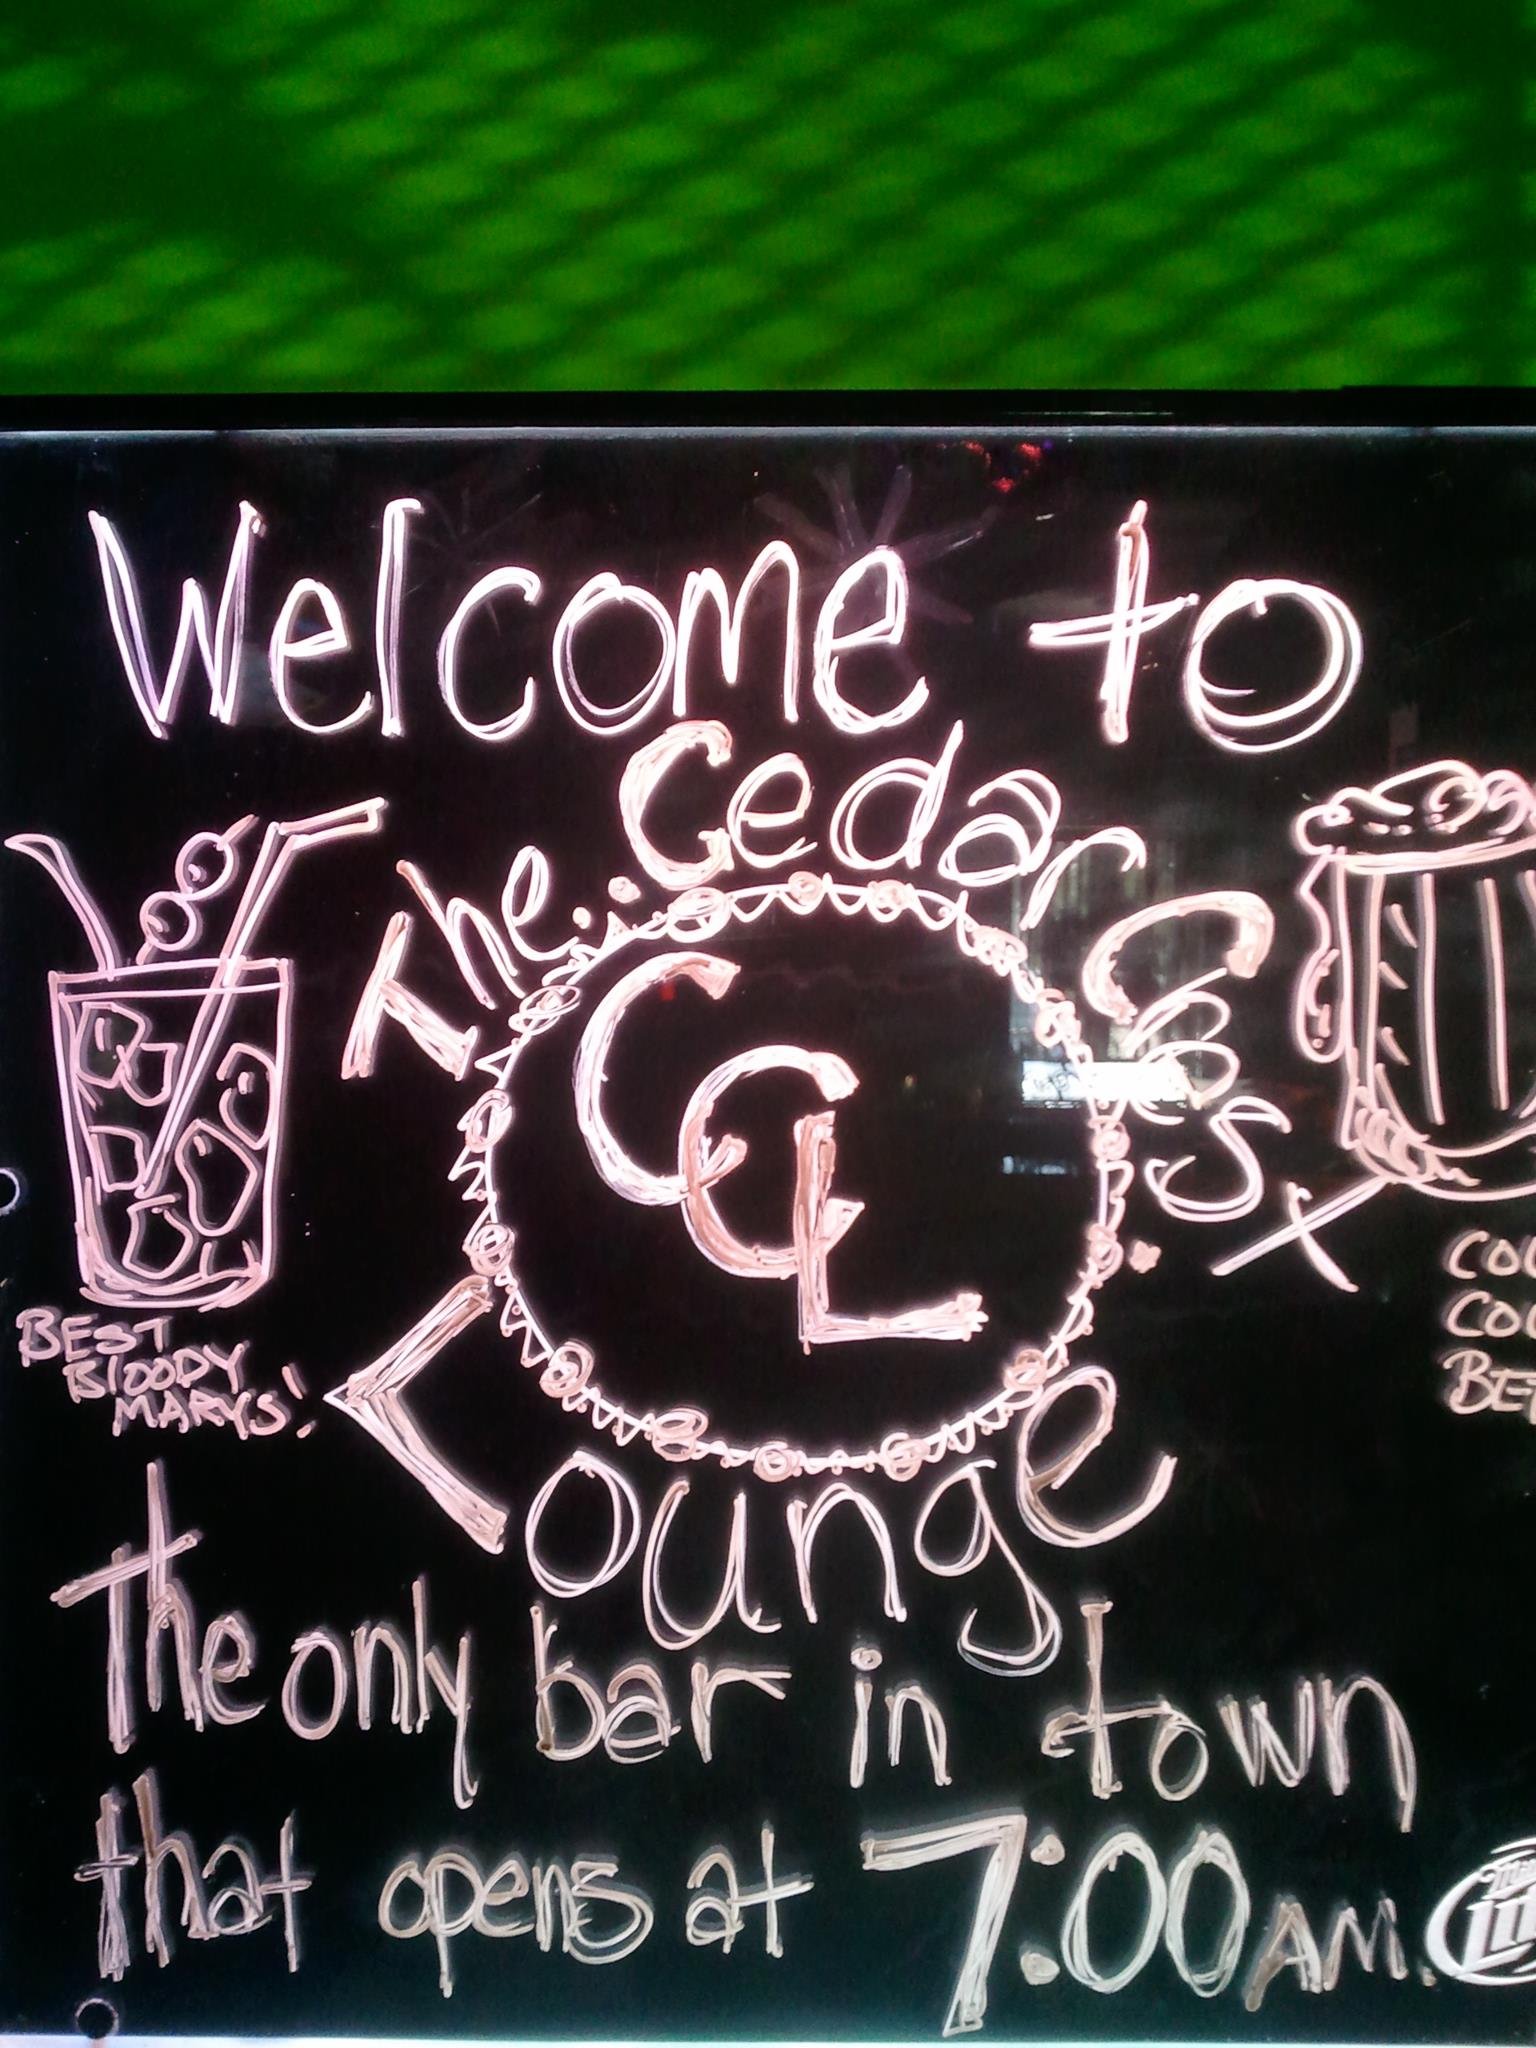 Welcome to
The Cedar
Lounge
CCL
BEST
BLOODY
MARYS!
The only bar in town
that opens at 7:00 AM.